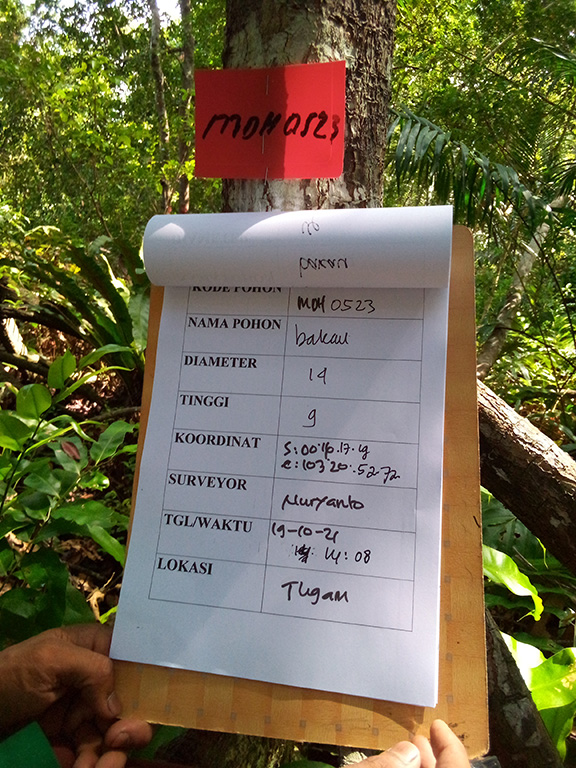 MDH0523
pakan
KODE POHON MDH 0523
NAMA POHON bakau
DIAMETER 14
TINGGI 9
KOORDINAT S:00.10.17.19
E:103.20.52.72
SURVEYOR Nuryanto
TGL/WAKTU 19-10-21
14:08
LOKASI Tugam